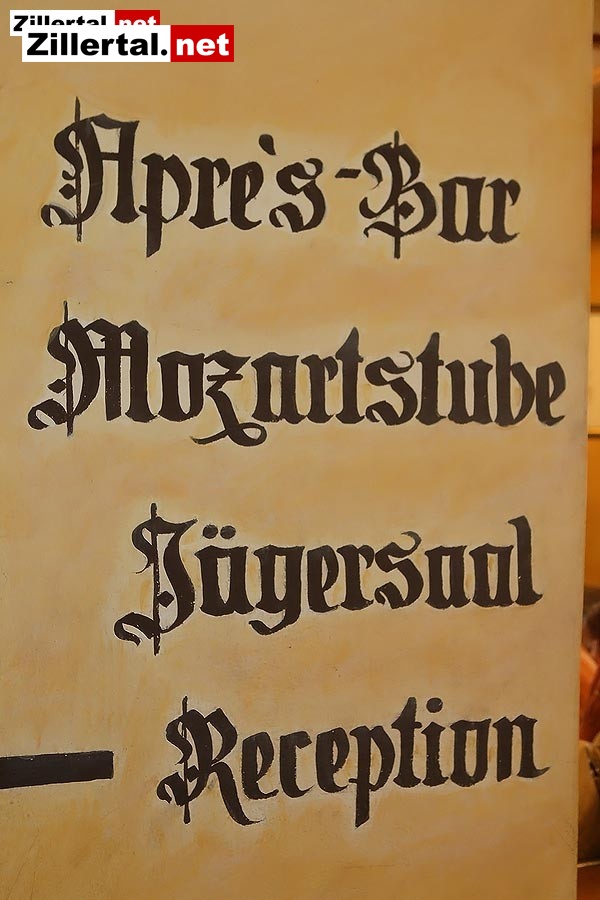 Zillertal.net
Zillertal.net
Apre's-Bar
Mozartstube
Jägersaal
Reception